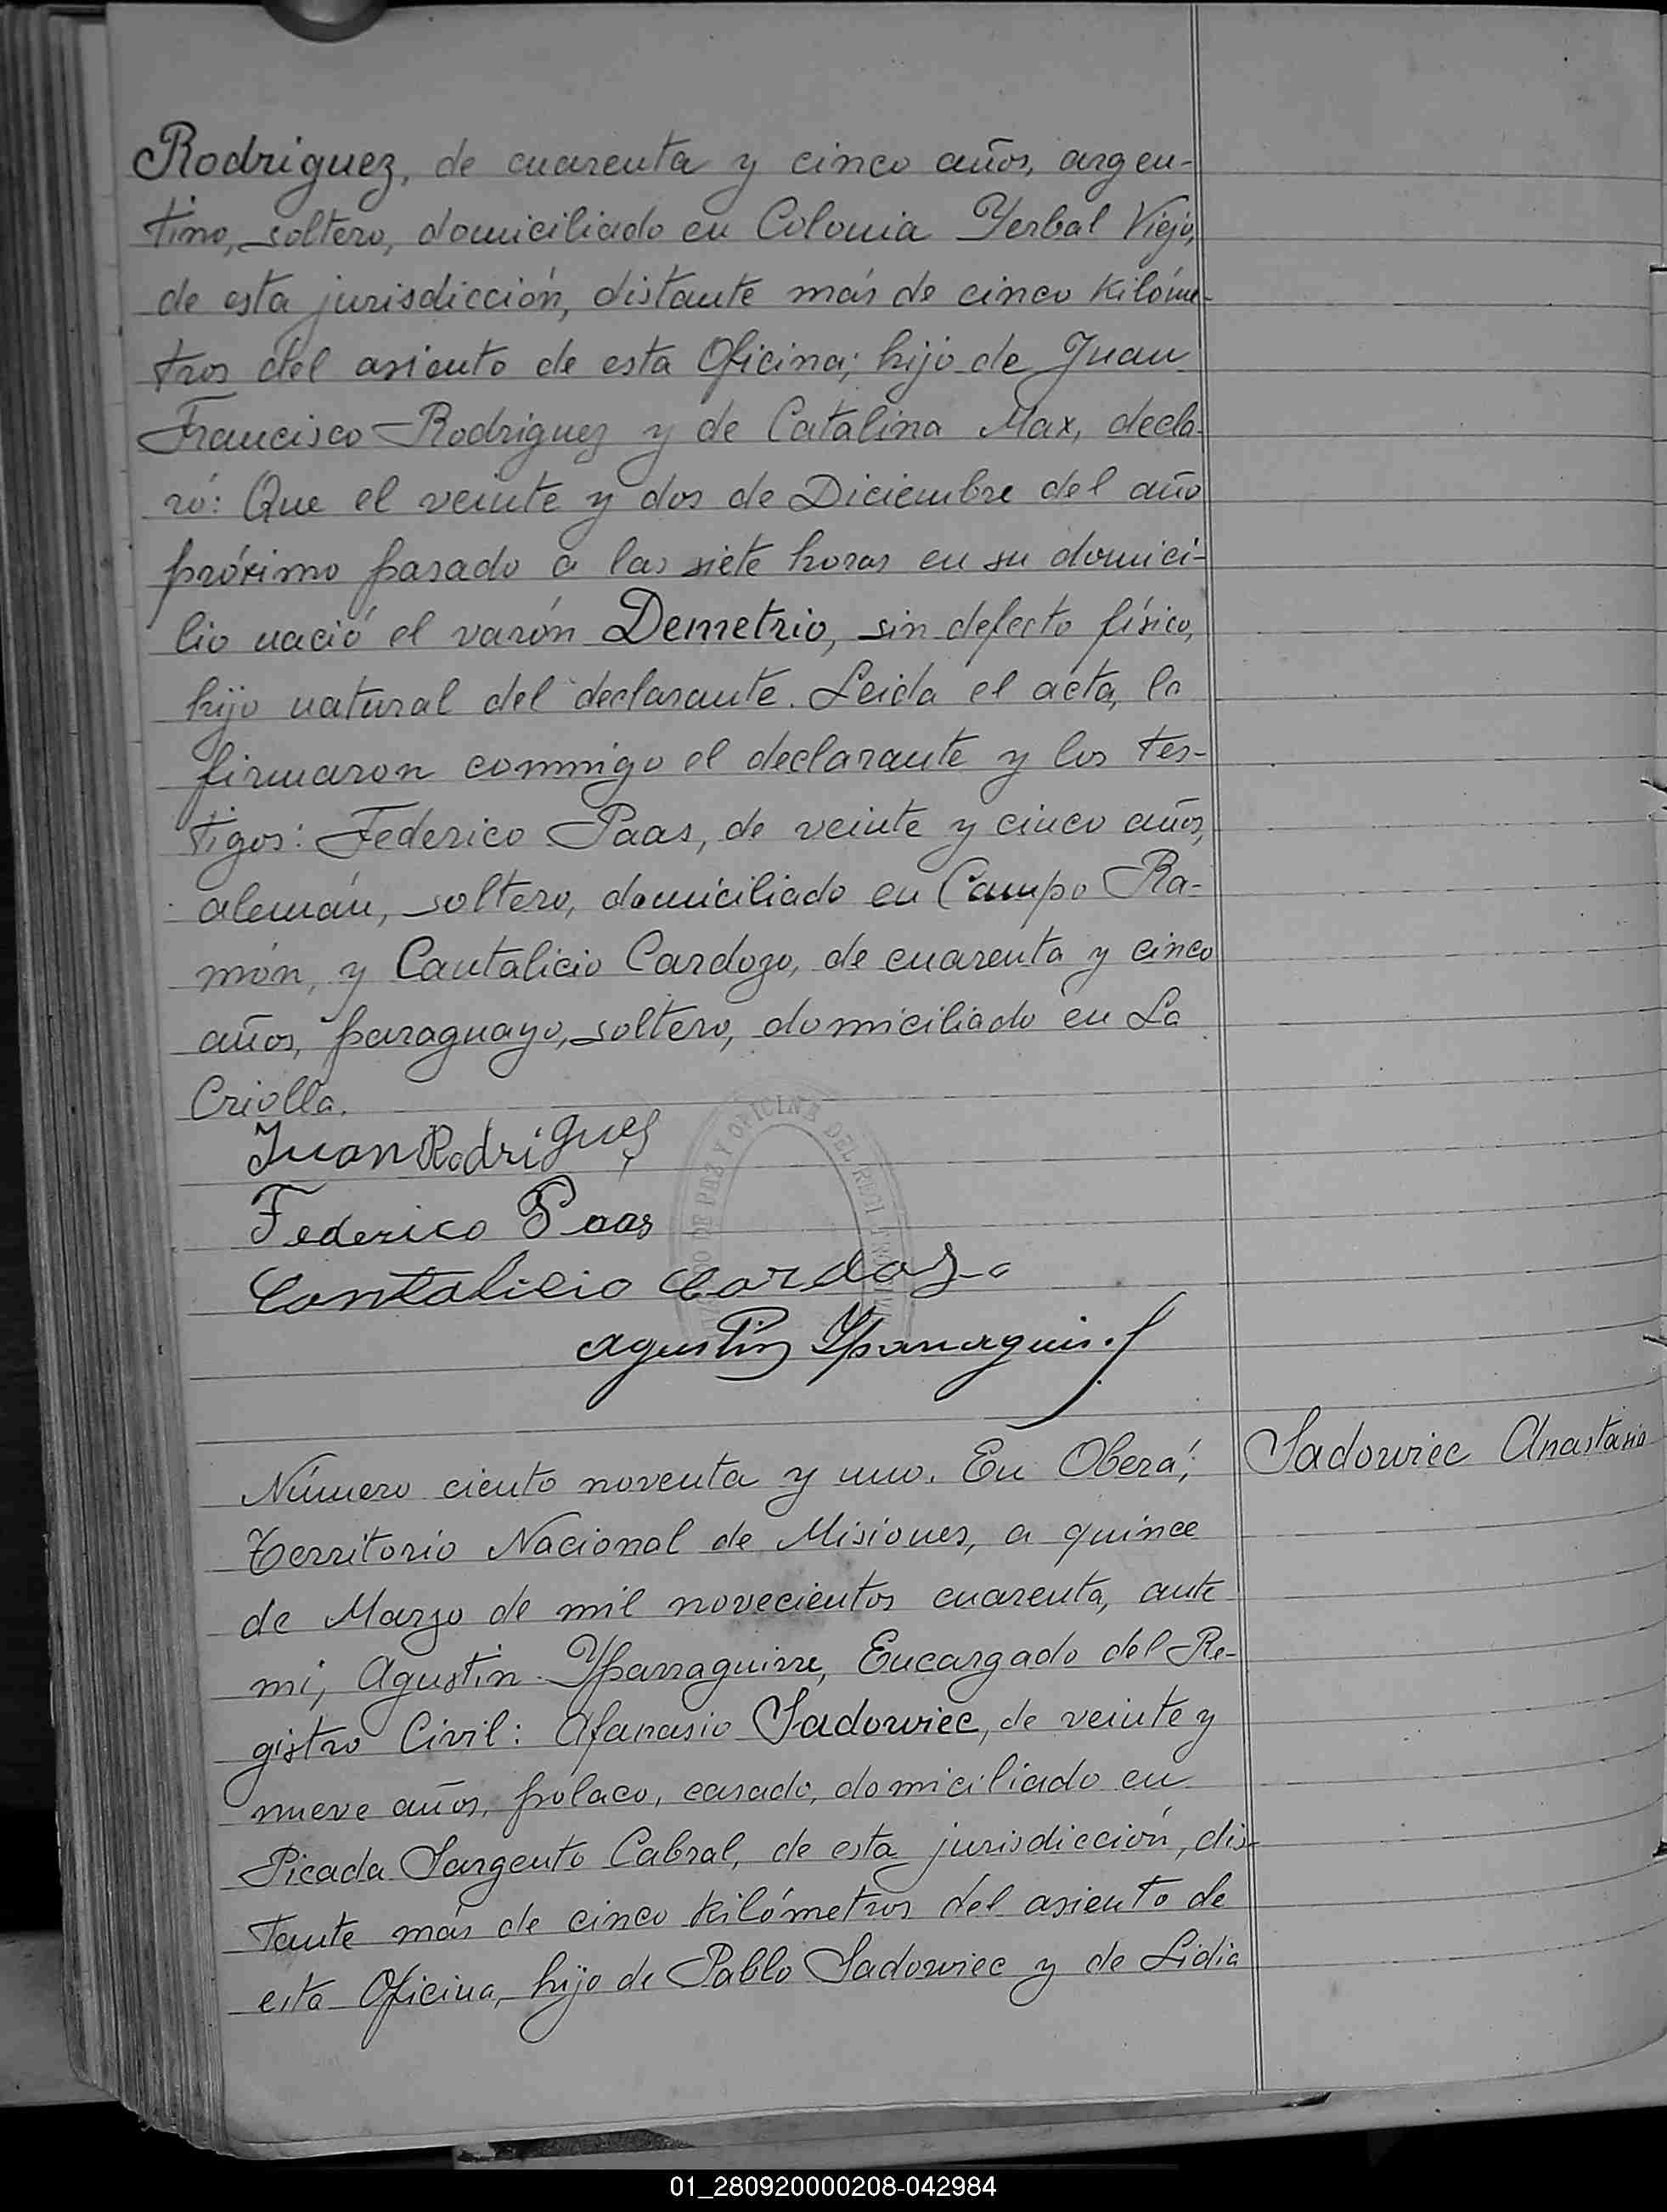 Rodriguez, de cuarenta y cinco años, argen-
tino, soltero, domiciliado en Colonia Yerbal Viejo,
de esta jurisdicción, distante más de cinco kilóme-
tros del asiento de esta Oficina; hijo de Juan
Francisco Rodriguez y de Catalina Max, decla-
ró: Que el veinte y dos de Diciembre del año
próximo pasado a las siete horas en su domici-
lio nació el varón Demetrio, sin defecto físico,
hijo natural del declarante. Leida el acta, la
firmaron conmigo el declarante y los tes-
tigos: Federico Paas, de veinte y cinco años,
alemán, soltero, domiciliado en Campo Ra-
món, y Cantalicio Cardozo, de cuarenta y cinco
años, paraguayo, soltero, domiciliado en La
Criolla.
Juan Rodrigues
Federico Paas
Cantalicio Cardozo
Agustin Yparraguirre
Número ciento noventa y uno. En Oberá,
Sadowiec Anastasia
Territorio Nacional de Misiones, a quince
de Marzo de mil novecientos cuarenta, ante
mi, Agustin Yparraguirre, Encargado del Re-
gistro Civil: Afanasio Sadowiec, de veinte y
nueve años, polaco, casado, domiciliado en
Picada Sargento Cabral, de esta jurisdicción, dis-
tante más de cinco kilómetros del asiento de
esta Oficina, hijo de Pablo Sadowiec y de Lidia
01_280920000208-042984